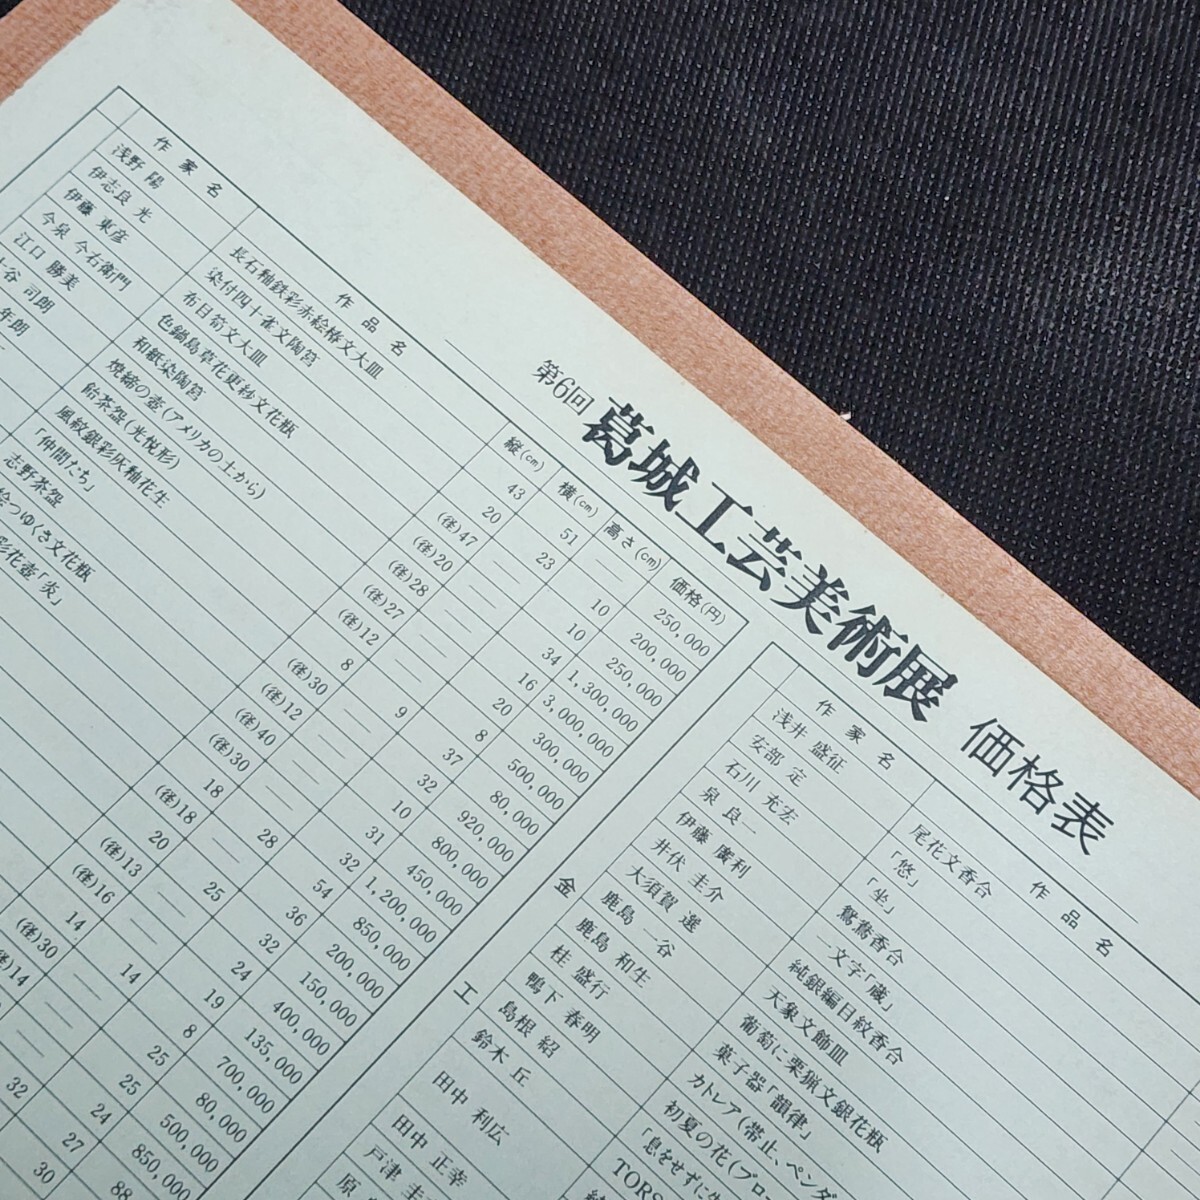 第6回 葛城工芸美術展 価格表
作家名 作品名 縦(cm) 横(cm) 高さ(cm) 価格(円)
浅野 陽 長石釉鉄彩赤絵椿文大皿 43 51 — 250,000
伊志良 光 染付四十雀文陶筥 20 23 10 200,000
伊藤 東彦 布目筒文大皿 (径)47 — 10 250,000
今泉 今右衛門 色鍋島草花更紗文花瓶 (径)20 — 34 1,300,000
江口 勝美 和紙染陶筥 (径)28 — 16 3,000,000
谷 司朗 焼締の壺(アメリカの土から) (径)27 — 20 300,000
年朗 飴茶盌(光悦形) (径)12 — 8 500,000
風紋銀彩灰釉花生 8 9 37 80,000
「仲間たち」 (径)30 — 32 920,000
志野茶盌 (径)12 — 10 800,000
絵つゆくさ文花瓶 (径)40 — 31 450,000
彩花壺「炎」 (径)30 — 32 1,200,000
18 28 54 850,000
(径)18 — 36 200,000
20 25 32 150,000
(径)13 — 24 400,000
(径)16 — 19 135,000
14 14 8 700,000
(径)30 — 25 80,000
(径)14 — 25 500,000
32 24 850,000
30 27
88
金工
作家名 作品名
浅井 盛征 尾花文香合
安部 定 「悠」
石川 充宏 「坐」
泉 良一 鴛鴦香合
伊藤 廣利 一文字「蔵」
井伏 圭介 純銀編目紋香合
大須賀 選 天象文飾皿
鹿島 一谷 葡萄に栗猟文銀花瓶
鹿島 和生 菓子器「韻律」
桂 盛行 カトレア(帯止、ペンダ
鴨下 春明 初夏の花(ブロー
島根 紹 「息をせずに生
鈴木 丘 TORS
田中 利広
田中 正幸
戸津 圭
原